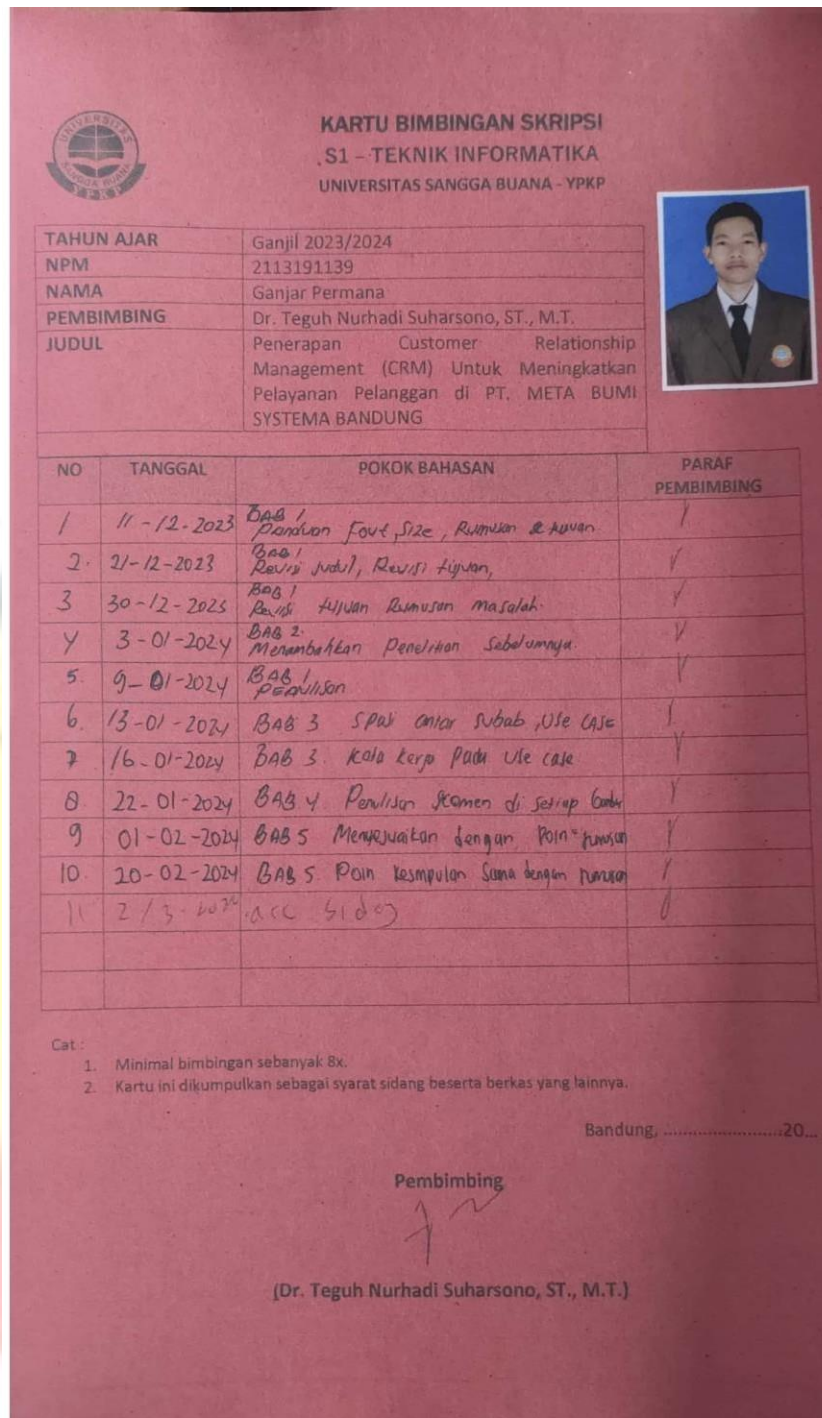 UNIVERSITAS
SANGGA BUANA
YPKP
KARTU BIMBINGAN SKRIPSI
S1 – TEKNIK INFORMATIKA
UNIVERSITAS SANGGA BUANA - YPKP
TAHUN AJAR Ganjil 2023/2024
NPM 2113191139
NAMA Ganjar Permana
PEMBIMBING Dr. Teguh Nurhadi Suharsono, ST., M.T.
JUDUL Penerapan Customer Relationship
Management (CRM) Untuk Meningkatkan
Pelayanan Pelanggan di PT. META BUMI
SYSTEMA BANDUNG
NO TANGGAL POKOK BAHASAN PARAF
PEMBIMBING
1 11-12-2023 BAB 1
Panduan Font, Size, Rumusan &
2. 21-12-2023 BAB 1
Revisi Judul, Revisi tujuan,
3 30-12-2023 BAB 1
Revisi tujuan Rumusan masalah.
4 3-01-2024 BAB 2.
Menambahkan Penelitian Sebelumnya.
5. 9-01-2024 BAB 1
Penulisan
6. 13-01-2024 BAB 3 Spasi antar Subab, USE CASE
7 16-01-2024 BAB 3. Kata kerja Pada Use case
8. 22-01-2024 BAB 4. Penulisan di setiap
9 01-02-2024 BAB 5 Menyesuaikan dengan Poin-
10. 20-02-2024 BAB 5. Poin Kesmpulan Sama dengan
11. acc sidang
Cat :
1. Minimal bimbingan sebanyak 8x.
2. Kartu ini dikumpulkan sebagai syarat sidang beserta berkas yang lainnya.
Bandung, ........................20...
Pembimbing
(Dr. Teguh Nurhadi Suharsono, ST., M.T.)